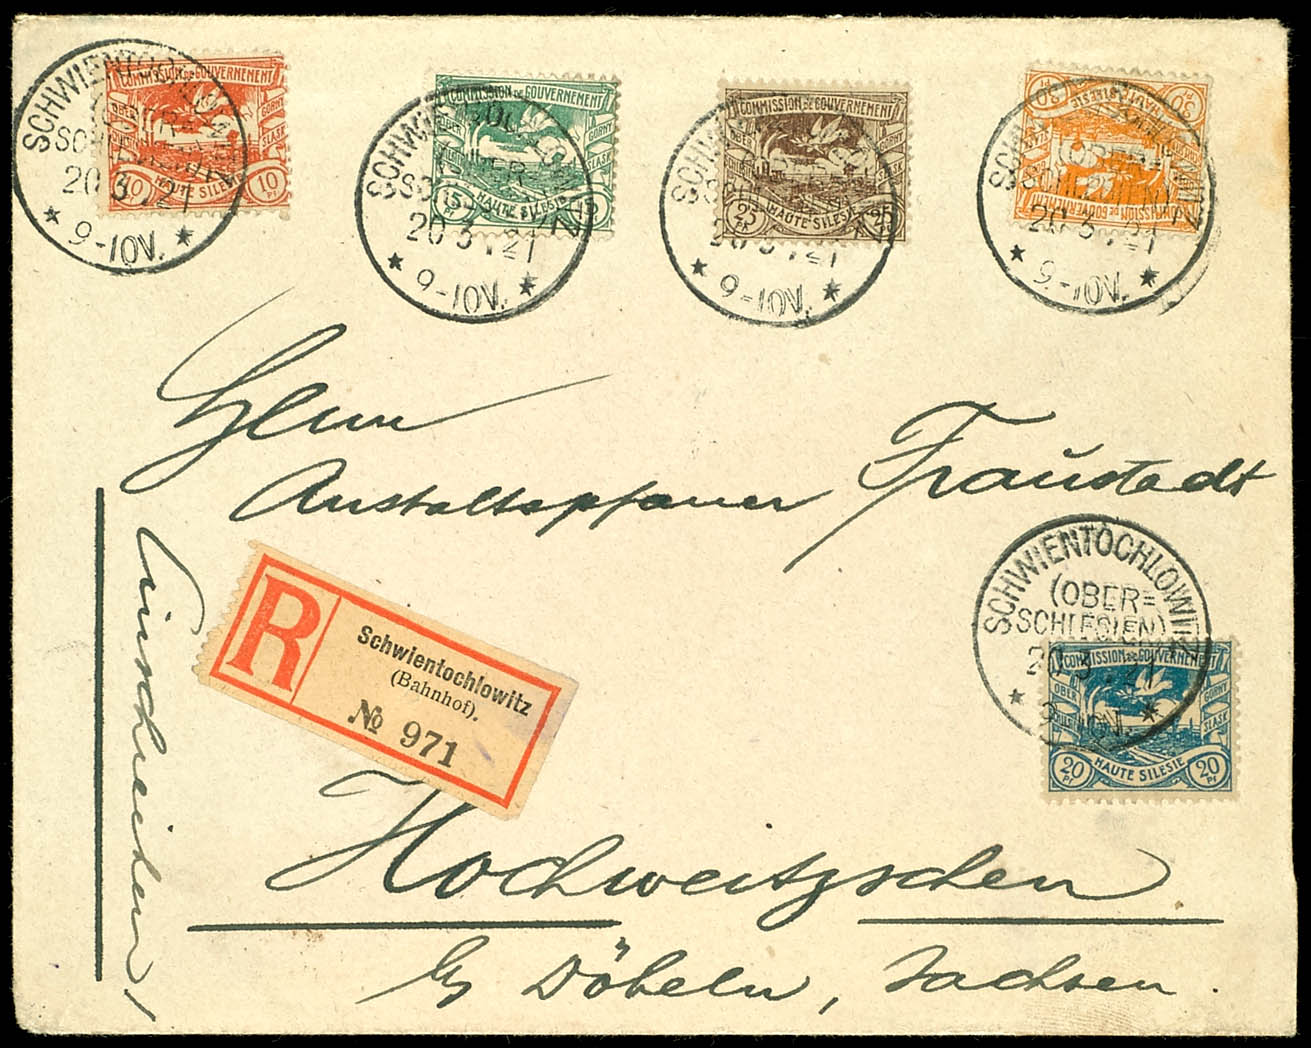 COMMISSION DE GOUVERNEMENT
OBER
GÓRNY
SLĄSK
10
10
Pf
HAUTE SILESIE
SCHWIENTOCHLOWITZ
20 3 .21
* 9-10V. *
COMMISSION DE GOUVERNEMENT
OBER
GÓRNY
ŚLĄSK
15
Pf
15
HAUTE SILESIE
20 3 .21
* 9-10V. *
COMMISSION DE GOUVERNEMENT
OBER
GÓRNY
ŚLĄSK
25
Pf
25
HAUTE SILESIE
20 3 .21
* 9-10V. *
COMMISSION DE GOUVERNEMENT
30
30
20 3 .21
* 9-10V. *
Herrn
Anstaltspfarrer Fraustadt
Einschreiben!
R
Schwientochlowitz
(Bahnhof).
№ 971
SCHWIENTOCHLOWITZ
(OBER=
SCHLESIEN)
20 3 .21
COMMISSION DE GOUVERNEMENT
OBER
GÓRNY
ŚLĄSK
20
Pf
20
Pf
HAUTE SILESIE
Hochweitzschen
b/ Döbeln, Sachsen.